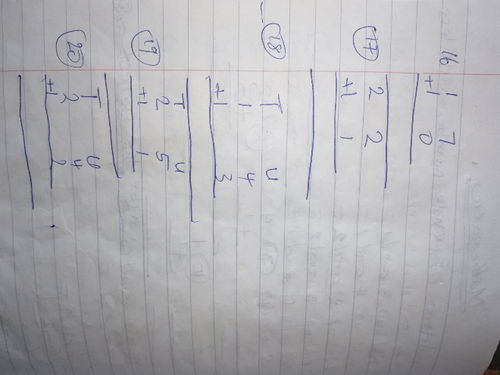 16
1 7
+1 0
17
2 2
+1 1
18
T U
1 4
+1 3
19
T U
2 5
+1 1
20
T U
2 4
+1 2